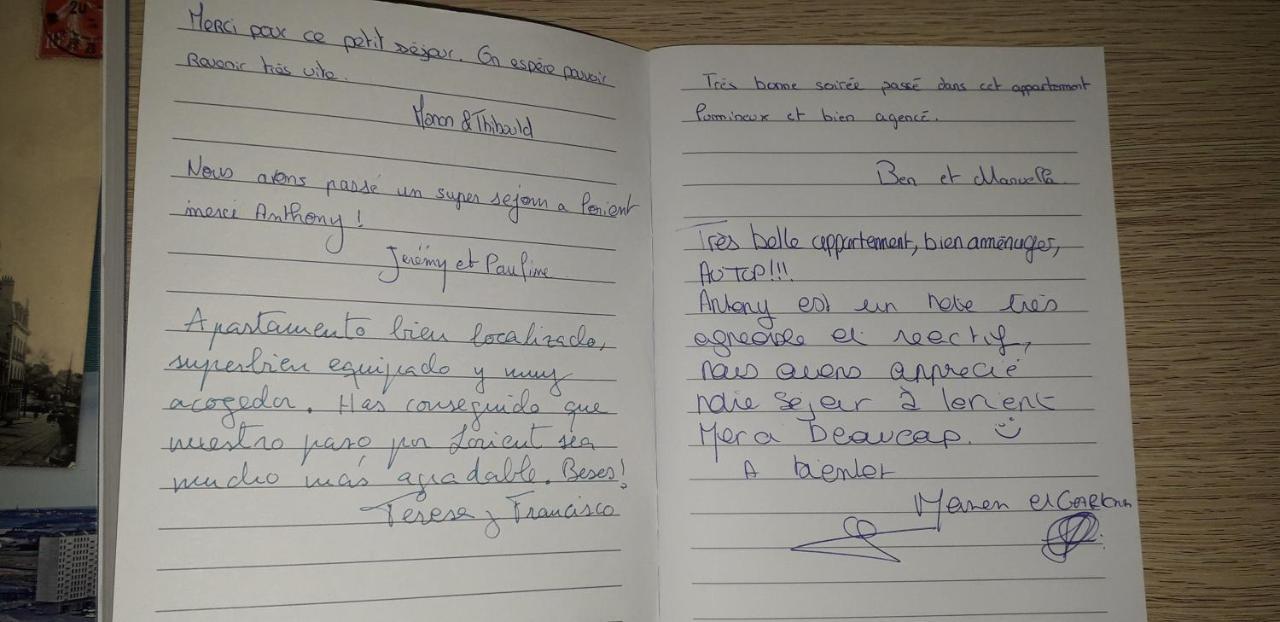 Merci pour ce petit séjour. On espère pouvoir
Revenir très vite.
Manon & Thibauld
Nous avons passé un super sejour a Lorient
merci Anthony !
Jérémy et Pauline
Apartamento bien localizado,
superbien equipado y muy
acogedor. Has conseguido que
nuestro paso por Lorient sea
mucho más agradable. Beses!
Teresa y Francisco
Très bonne soirée passé dans cet appartement
lumineux et bien agencé.
Ben et Manuella
Très belle appartement, bien aménages,
AU TOP!!!
Antony est un hote très
agreable et reactif,
nous avons apprecié
notre sejour à lorient
Merci beaucoup. :)
A bientot
20